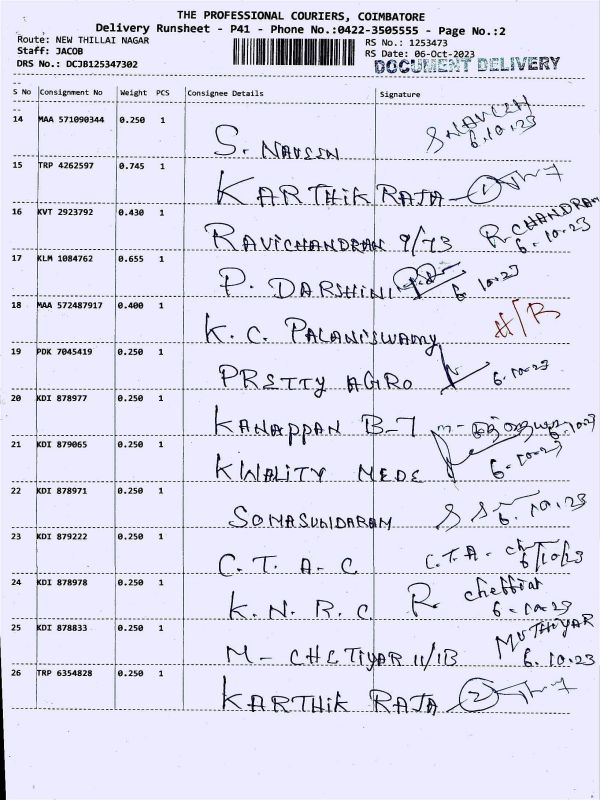 THE PROFESSIONAL COURIERS, COIMBATORE
Delivery Runsheet - P41 - Phone No.:0422-3505555 - Page No.:2
Route: NEW THILLAI NAGAR
RS No.: 1253473
Staff: JACOB
RS Date: 06-Oct-2023
DRS No.: DCJB125347302
DOCUMENT DELIVERY
S No Consignment No Weight PCS Consignee Details Signature
14 MAA 571090344 0.250 1 S. NAVEEN 6.10.23
15 TRP 4262597 0.745 1 KARTHIK RAJA - 1
16 KVT 2923792 0.430 1 RAVICHANDRAN 9/73 R CHANDRAN 6.10.23
17 KLM 1084762 0.655 1 P. DARSHINI 6.10.23
18 MAA 572487917 0.400 1 K. C. PALANISWAMY H/R
19 PDK 7045419 0.250 1 PRETTY AGRO 6.10.23
20 KDI 878977 0.250 1 KANAPPAN B-7 6.10.23
21 KDI 879065 0.250 1 KWALITY MEDE 6.10.23
22 KDI 878971 0.250 1 SOMASUNDARAM 6.10.23
23 KDI 879222 0.250 1 C. T. A. C C.T.A - 6/10/23
24 KDI 878978 0.250 1 K. N. R. C R chettiar 6.10.23
25 KDI 878833 0.250 1 M - CHETIYAR 11/13 MUTHIYAR 6.10.23
26 TRP 6354828 0.250 1 KARTHIK RAJA 2